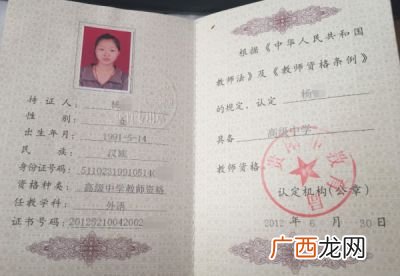 持证人：杨
性别：女
出生年月：1991-5-14
民族：汉族
身份证号码：51102319910514
资格种类：高级中学教师资格
任教学科：外语
证书号码：20125210042002
根据《中华人民共和国
教师法》及《教师资格条例》
的规定，认定 杨
具备 高级中学
教师资格
认定机构（公章）
2012 年 6 月 30 日
广西龙网